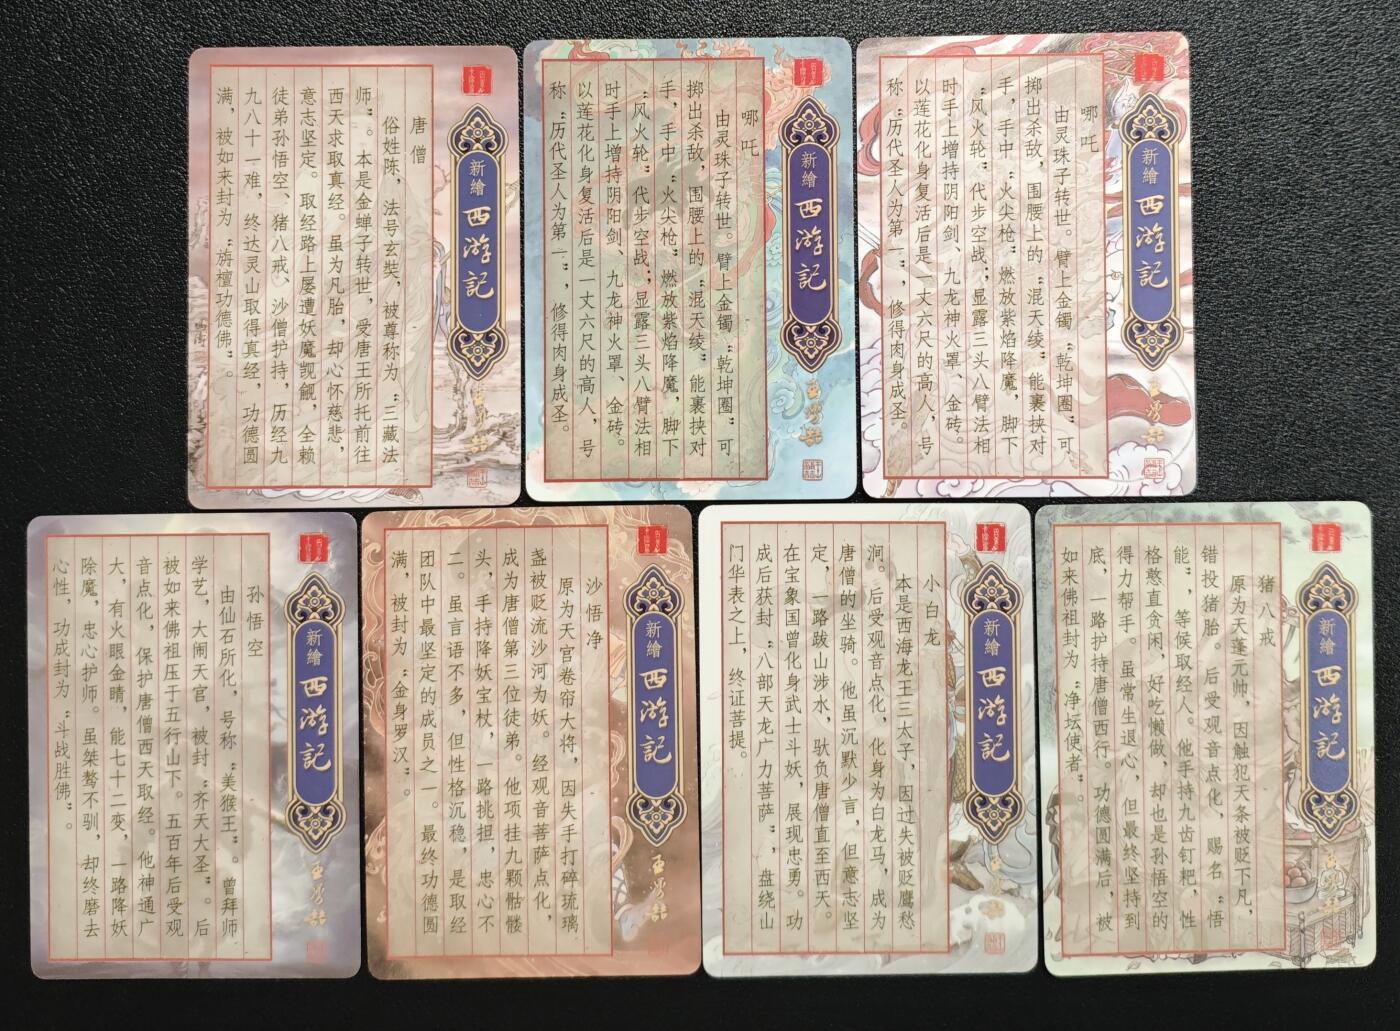 唐僧
俗姓陈，法号玄奘，被尊称为“三藏法
师”。本是金蝉子转世，受唐王所托前往
西天求取真经。虽为凡胎，却心怀慈悲，
意志坚定。取经路上屡遭妖魔觊觎，全赖
徒弟孙悟空、猪八戒、沙僧护持，历经九
九八十一难，终达灵山取得真经，功德圆
满，被如来封为“旃檀功德佛”。
新繪
西游記
哪吒
由灵珠子转世。臂上金镯“乾坤圈”可
掷出杀敌，围腰上的“混天绫”能裹挟对
手，手中“火尖枪”燃放紫焰降魔，脚下
“风火轮”代步空战；显露三头八臂法相
时手上增持阴阳剑、九龙神火罩、金砖。
以莲花化身复活后是一丈六尺的高人，号
称“历代圣人为第一”，修得肉身成圣。
新繪
西游記
哪吒
由灵珠子转世。臂上金镯“乾坤圈”可
掷出杀敌，围腰上的“混天绫”能裹挟对
手，手中“火尖枪”燃放紫焰降魔，脚下
“风火轮”代步空战；显露三头八臂法相
时手上增持阴阳剑、九龙神火罩、金砖。
以莲花化身复活后是一丈六尺的高人，号
称“历代圣人为第一”，修得肉身成圣。
新繪
西游記
孙悟空
由仙石所化，号称“美猴王”。曾拜师
学艺，大闹天宫，被封“齐天大圣”。后
被如来佛祖压于五行山下。五百年后受观
音点化，保护唐僧西天取经。他神通广
大，有火眼金睛，能七十二变，一路降妖
除魔，忠心护师。虽桀骜不驯，却终磨去
心性，功成封为“斗战胜佛”。
新繪
西游記
沙悟净
原为天宫卷帘大将，因失手打碎琉璃
盏被贬流沙河为妖。经观音菩萨点化，
成为唐僧第三位徒弟。他项挂九颗骷髅
头，手持降妖宝杖，一路挑担，忠心不
二。虽言语不多，但性格沉稳，是取经
团队中最坚定的成员之一。最终功德圆
满，被封为“金身罗汉”。
新繪
西游記
小白龙
本是西海龙王三太子，因过失被贬鹰愁
涧。后受观音点化，化身为白龙马，成为
唐僧的坐骑。他虽沉默少言，但意志坚
定，一路跋山涉水，驮负唐僧直至西天。
在宝象国曾化身武士斗妖，展现忠勇。功
成后获封“八部天龙广力菩萨”，盘绕山
门华表之上，终证菩提。
新繪
西游記
猪八戒
原为天蓬元帅，因触犯天条被贬下凡，
错投猪胎。后受观音点化，赐名“悟
能”，等候取经人。他手持九齿钉耙，性
格憨直贪闲，好吃懒做，却也是孙悟空的
得力帮手。虽常生退心，但最终坚持到
底，一路护持唐僧西行。功德圆满后，被
如来佛祖封为“净坛使者”。
新繪
西游記